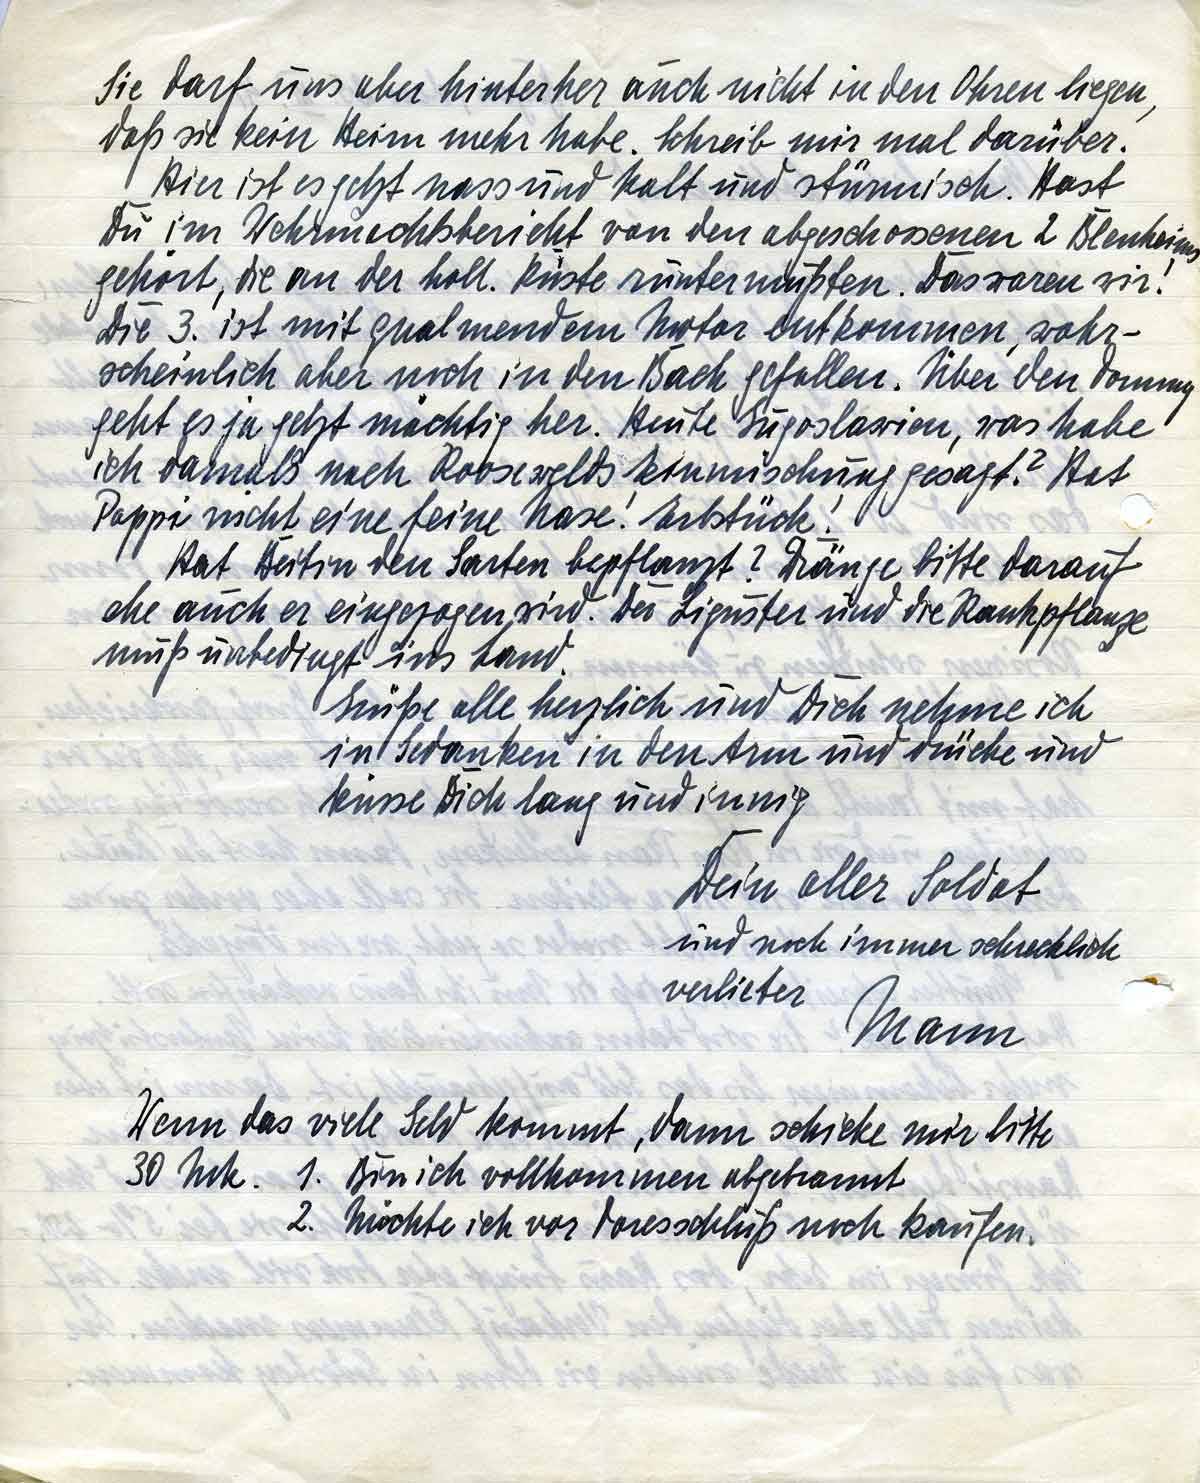 Sie darf uns aber hinterher auch nicht in den Ohren liegen,
daß sie kein Heim mehr habe. Schreib mir mal darüber.
Hier ist es jetzt nass und kalt und stürmisch. Hast
Du im Wehrmachtsbericht von den abgeschossenen 2 Blenheims
gehört, die an der holl. Küste runter mußten. Das waren wir!
Die 3. ist mit qualmendem Motor entkommen, wahr-
scheinlich aber noch in den Bach gefallen. Über den
geht es ja jetzt mächtig her. Heute Jugoslawien, was habe
ich damals nach Roosevelds Einmischung gesagt? Hat
Pappi nicht eine feine Nase! Erbstück!
Hat in den Garten bepflanzt? Dränge bitte darauf
ehe auch er eingezogen wird. Der Liguster und die Rankpflanze
muß unbedingt ins Land.
Grüße alle herzlich und Dich nehme ich
in Gedanken in den Arm und drücke und
küsse Dich lang und innig
Dein oller Soldat
und noch immer schrecklich
verliebter
Mann
Wenn das viele Geld kommt, dann schicke mir bitte
30 Mk. 1. Bin ich vollkommen abgebrannt
2. Möchte ich vor Toresschluß noch kaufen.